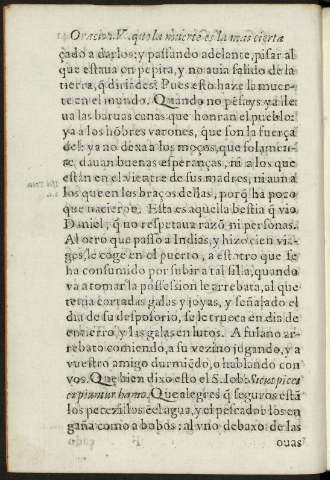 Oracion V. que la muerte es la mas cierta
çado a darlos: y passando adelante, pisar al
que estaua en pepita, y no auia salido de la
tierra, q̃ diriades? Pues esto haze la muer-
te en el mundo. Quando no pẽsays ya lle-
ua las baruas canas que honran el pueblo:
ya a los hõbres varones, que son la fuerça
del: ya no dexa a los moços, que solamen-
te, dauan buenas esperanças, ni a los que
están en el vientre de sus madres, ni aun a
los que en los braços dellas, porq̃ ha poco
que nacieron. Esta es aquella bestia q̃ vio
Daniel, q̃ no respetaua razõ, ni personas.
Al otro que passò a Indias, y hizo cien via-
ges, le coge en el puerto, a estotro que se
ha consumido por subir a tal silla, quando
va a tomar la possession le arrebata, al que
tenia cortadas galas y joyas, y señalado el
dia de su desposorio, se le trueca en dia de
entierro, y las galas en lutos. A fulano ar-
rebato comiendo, a su vezino jugando, y a
vuestro amigo durmiẽdo, o hablando con
vos. Que bien dixo esto el S. Iob: Sicut pisces
capiuntur homo. Que alegres q̃ seguros estã
los pececillos en el agua, y el pescador los en
gaña como a bobos: al vno debaxo de las
ouas